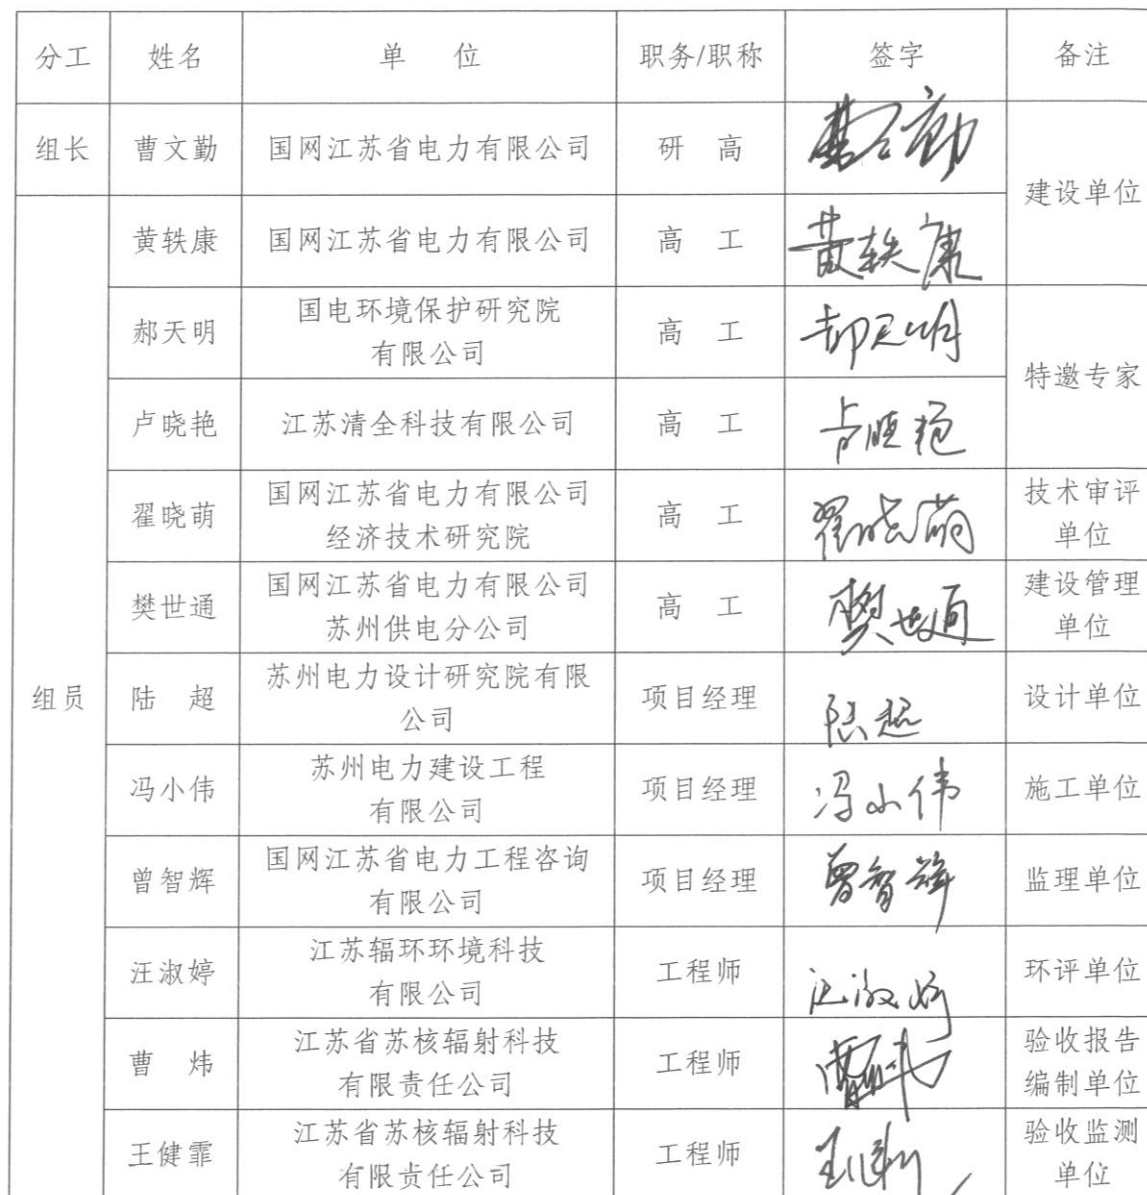 分工 姓名 单 位 职务/职称 签字 备注
组长 曹文勤 国网江苏省电力有限公司 研 高 曹文勤 建设单位
组员
黄轶康 国网江苏省电力有限公司 高 工 黄轶康
郝天明 国电环境保护研究院
有限公司 高 工 郝天明 特邀专家
卢晓艳 江苏清全科技有限公司 高 工 卢晓艳
翟晓萌 国网江苏省电力有限公司
经济技术研究院 高 工 翟晓萌 技术审评
单位
樊世通 国网江苏省电力有限公司
苏州供电分公司 高 工 樊世通 建设管理
单位
陆 超 苏州电力设计研究院有限
公司 项目经理 陆超 设计单位
冯小伟 苏州电力建设工程
有限公司 项目经理 冯小伟 施工单位
曾智辉 国网江苏省电力工程咨询
有限公司 项目经理 曾智辉 监理单位
汪淑婷 江苏辐环环境科技
有限公司 工程师 汪淑婷 环评单位
曹 炜 江苏省苏核辐射科技
有限责任公司 工程师 曹炜 验收报告
编制单位
王健霏 江苏省苏核辐射科技
有限责任公司 工程师 验收监测
单位